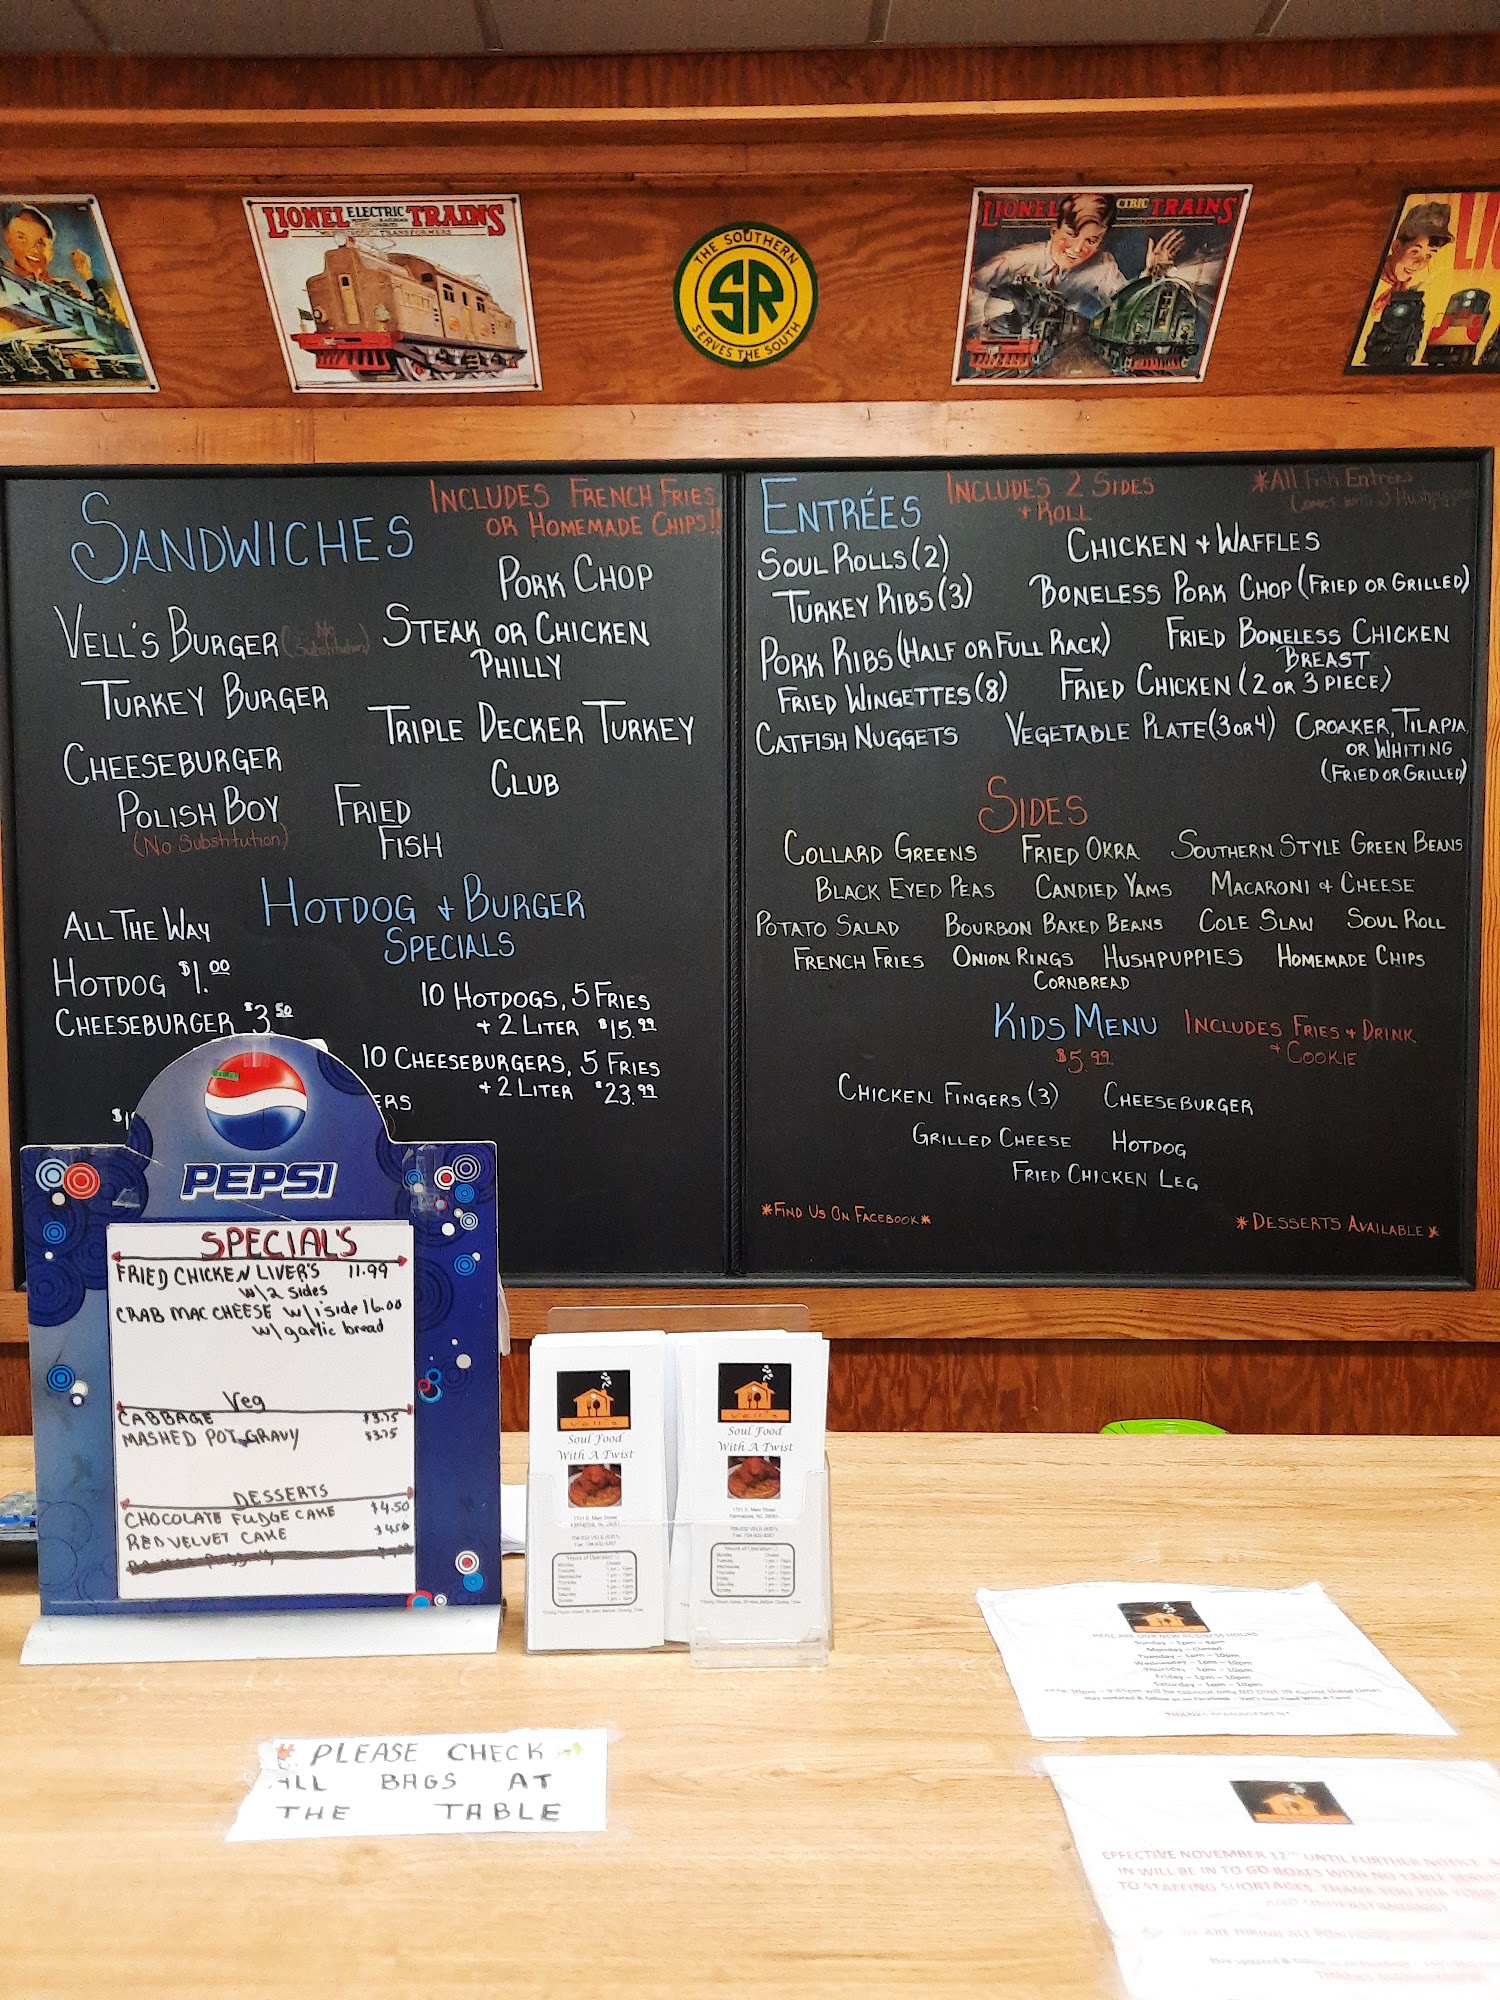 LIONEL ELECTRIC TRAINS
THE SOUTHERN
SR
SERVES THE SOUTH
LIONEL CTRIC TRAINS
SANDWICHES
INCLUDES FRENCH FRIES
OR HOMEMADE CHIPS!!
PORK CHOP
VELL'S BURGER (No Substitution)
STEAK OR CHICKEN
PHILLY
TURKEY BURGER
TRIPLE DECKER TURKEY
CLUB
CHEESEBURGER
POLISH BOY
(No Substitution)
FRIED
FISH
HOTDOG + BURGER
SPECIALS
ALL THE WAY
HOTDOG $1.00
CHEESEBURGER $3.50
10 HOTDOGS, 5 FRIES
+ 2 LITER $15.99
10 CHEESEBURGERS, 5 FRIES
+ 2 LITER $23.99
ENTRÉES
INCLUDES 2 SIDES
+ ROLL
*All Fish Entrées
Comes with 3 Hushpuppies
SOUL ROLLS (2)
CHICKEN + WAFFLES
TURKEY RIBS (3)
BONELESS PORK CHOP (FRIED OR GRILLED)
PORK RIBS (HALF OR FULL RACK)
FRIED BONELESS CHICKEN
BREAST
FRIED WINGETTES (8)
FRIED CHICKEN (2 OR 3 PIECE)
CATFISH NUGGETS
VEGETABLE PLATE (3 OR 4)
CROAKER, TILAPIA
OR WHITING
(FRIED OR GRILLED)
SIDES
COLLARD GREENS FRIED OKRA SOUTHERN STYLE GREEN BEANS
BLACK EYED PEAS CANDIED YAMS MACARONI & CHEESE
POTATO SALAD BOURBON BAKED BEANS COLE SLAW SOUL ROLL
FRENCH FRIES ONION RINGS HUSHPUPPIES HOMEMADE CHIPS
CORNBREAD
KIDS MENU INCLUDES FRIES + DRINK
+ COOKIE
$5.99
CHICKEN FINGERS (3) CHEESEBURGER
GRILLED CHEESE HOTDOG
FRIED CHICKEN LEG
*FIND US ON FACEBOOK*
*DESSERTS AVAILABLE*
PEPSI
SPECIAL'S
FRIED CHICKEN LIVER'S 11.99
w\2 sides
CRAB MAC CHEESE w/1 side 16.00
w/ garlic bread
Veg
CABBAGE $3.75
MASHED POT GRAVY $3.75
DESSERTS
CHOCOLATE FUDGE CAKE $4.50
RED VELVET CAKE
Vell's
Soul Food
With A Twist
Vell's
Soul Food
With A Twist
1701 S. Main Street
Kannapolis, NC 28081
PLEASE CHECK
ALL BAGS AT
THE TABLE
HERE ARE OUR NEW BUSINESS HOURS
Sunday – 1pm – 8pm
Monday – Closed
Tuesday – 1pm – 10pm
Wednesday – 1pm – 10pm
Thursday – 1pm – 10pm
Friday – 1pm – 10pm
Saturday – 1pm – 10pm
THANKS MANAGEMENT
EFFECTIVE NOVEMBER 12TH UNTIL FURTHER NOTICE
IN WILL BE IN TO GO BOXES WITH NO TABLE
TO STAFFING SHORTAGES. THANK YOU FOR YOUR